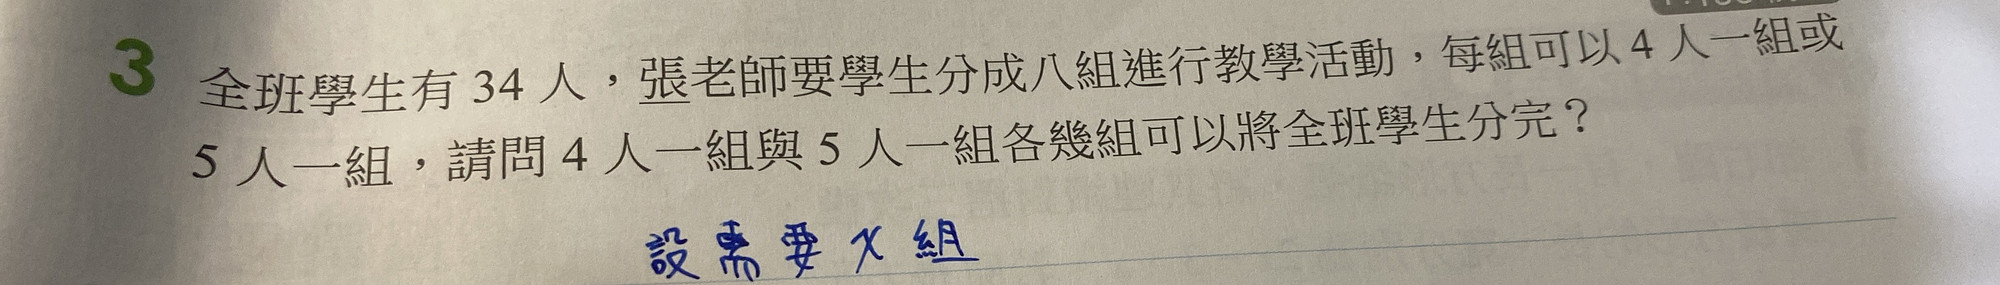 3 全班學生有 34 人，張老師要學生分成八組進行教學活動，每組可以 4 人一組或
5 人一組，請問 4 人一組與 5 人一組各幾組可以將全班學生分完？
設需要 x 組